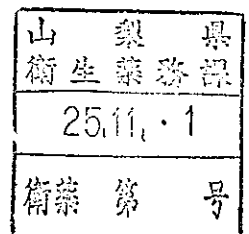 山梨県
衛生薬務課
25.11.・1
衛薬第　号